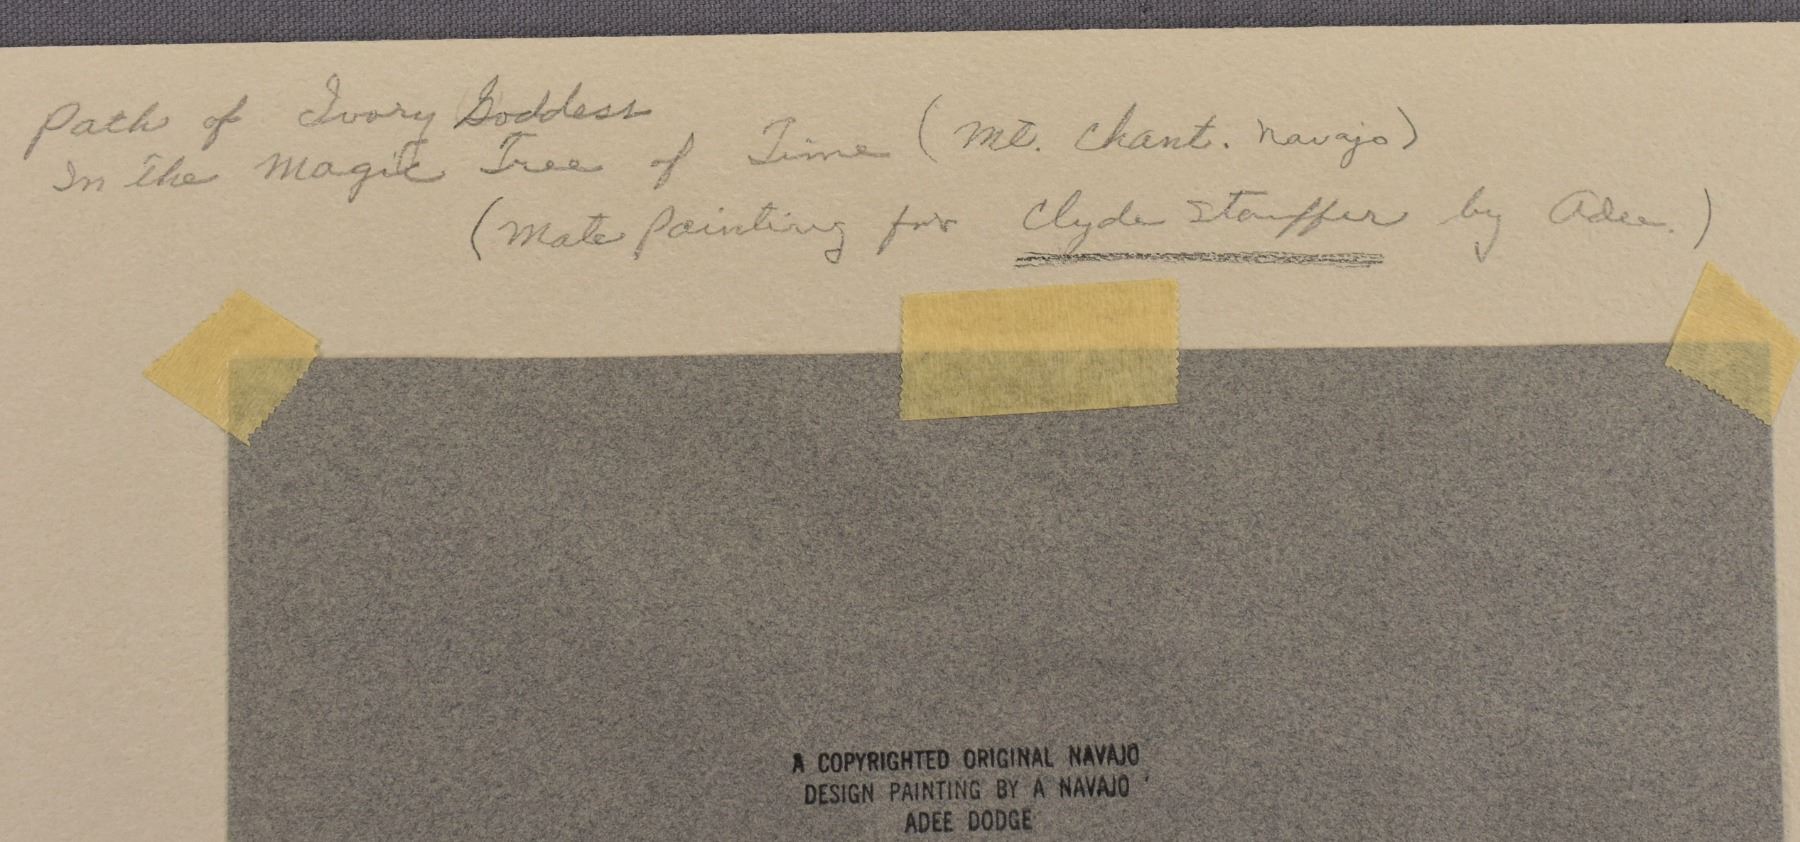 Path of Ivory Goddess
In the Magic Tree of Time (Mt. Chant. Navajo)
(Mate Painting for Clyde Stauffer by Adee.)
A COPYRIGHTED ORIGINAL NAVAJO
DESIGN PAINTING BY A NAVAJO
ADEE DODGE